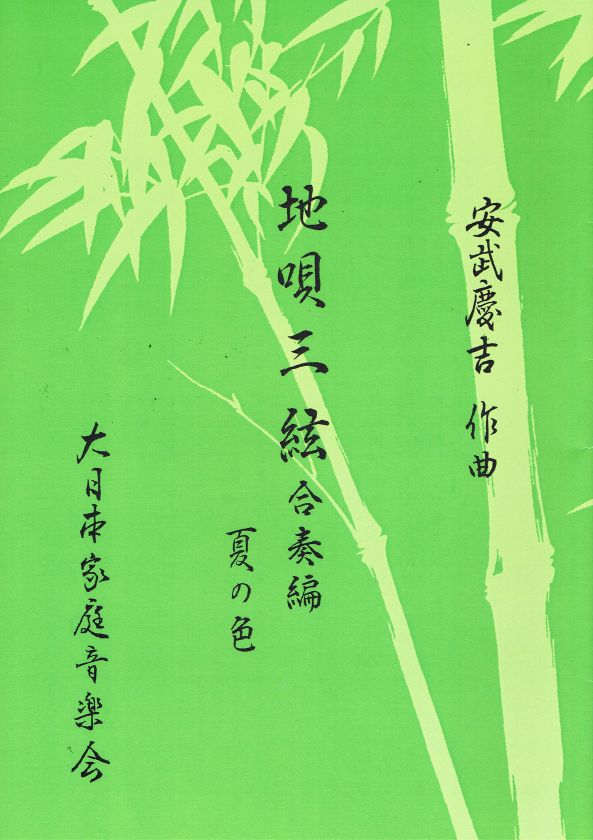 安武慶吉 作曲
地唄三絃合奏編
夏の色
大日本家庭音楽会